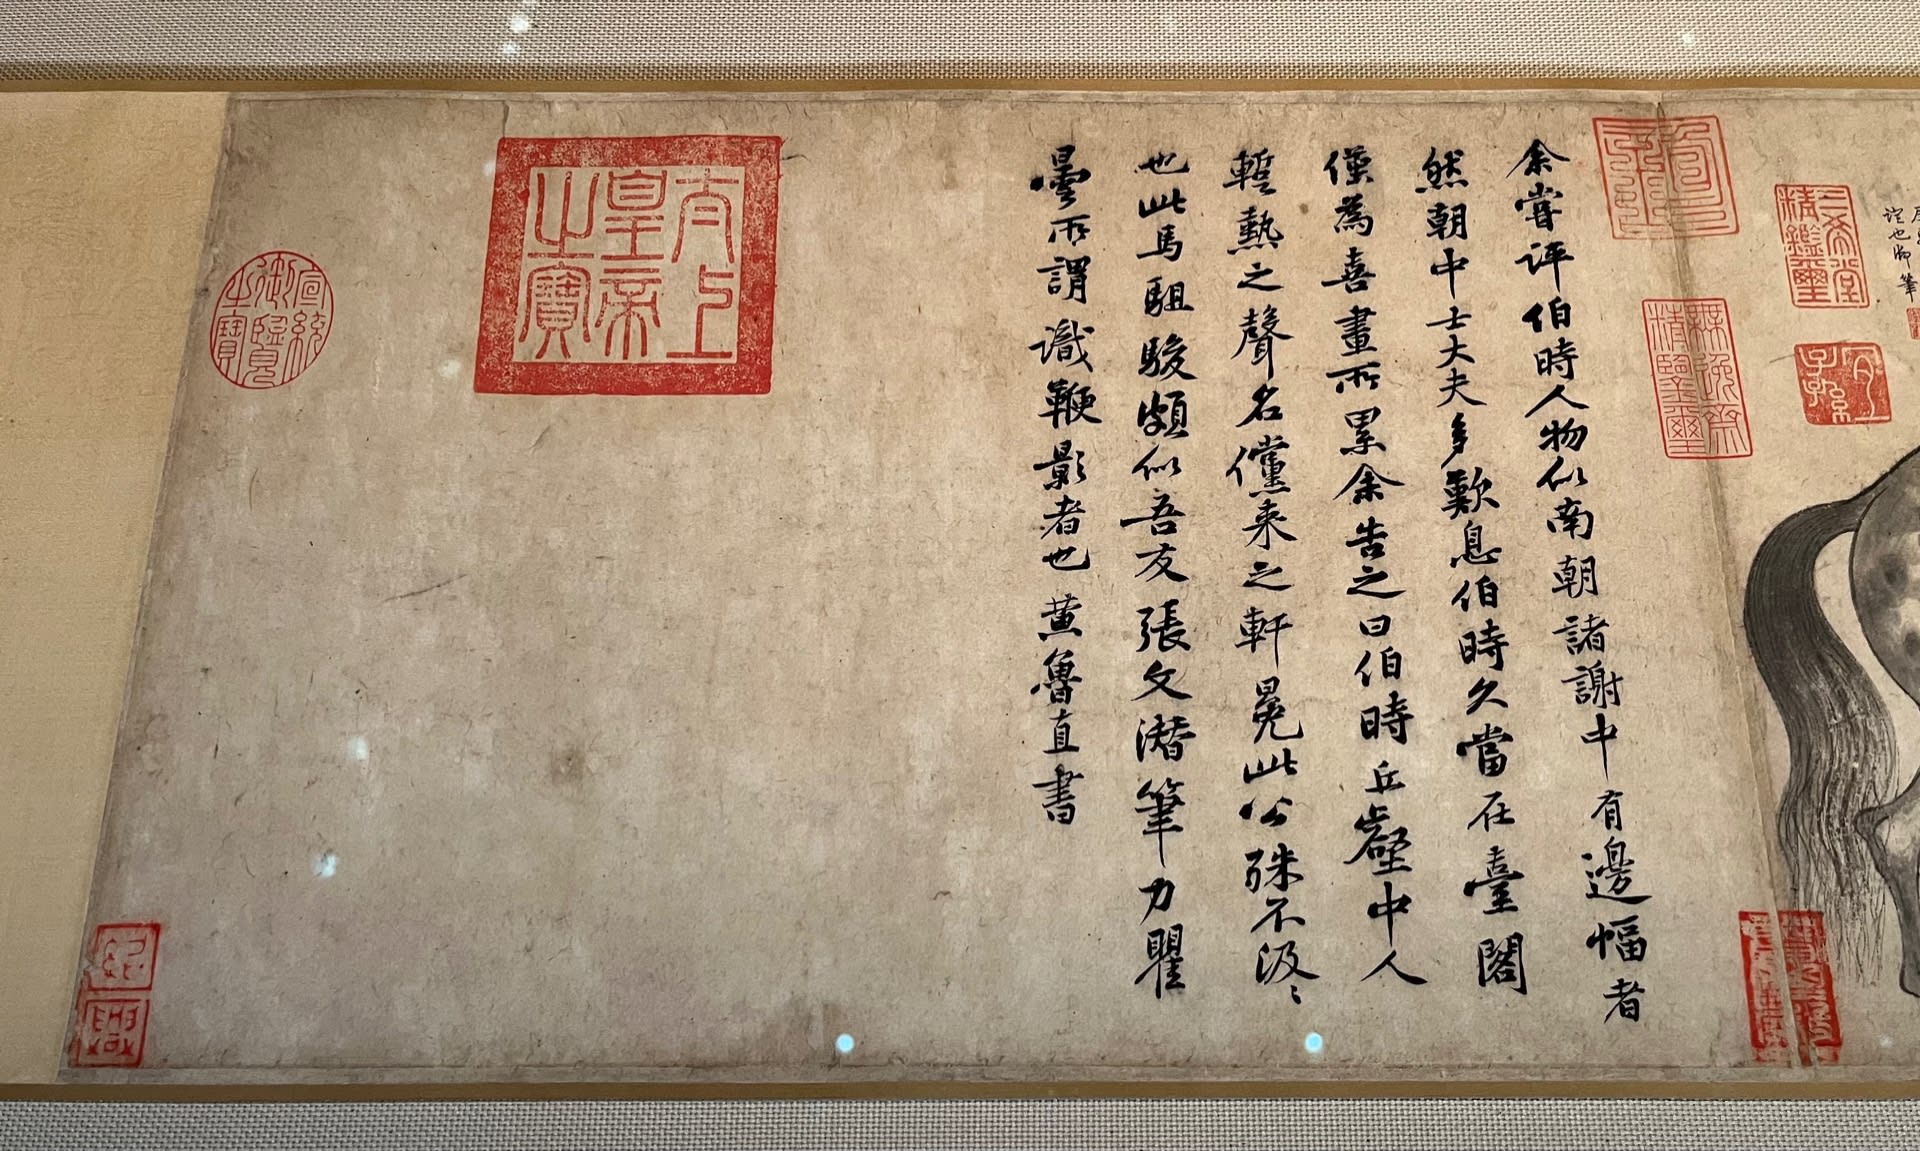 余嘗評伯時人物似南朝諸謝中有邊幅者
然朝中士大夫多歎息伯時久當在臺閣
僅為喜畫所累余告之曰伯時丘壑中人
暫熱之聲名儻來之軒冕此公殊不汲〻
也此馬駔駿頗似吾友張文潛筆力瞿
曇所謂識鞭影者也 黃魯直書
三希堂
精鑑璽
無逸齋
精鑒璽
子孫
太上
皇帝
之寶
宣統
御覽
之寶
紹
興